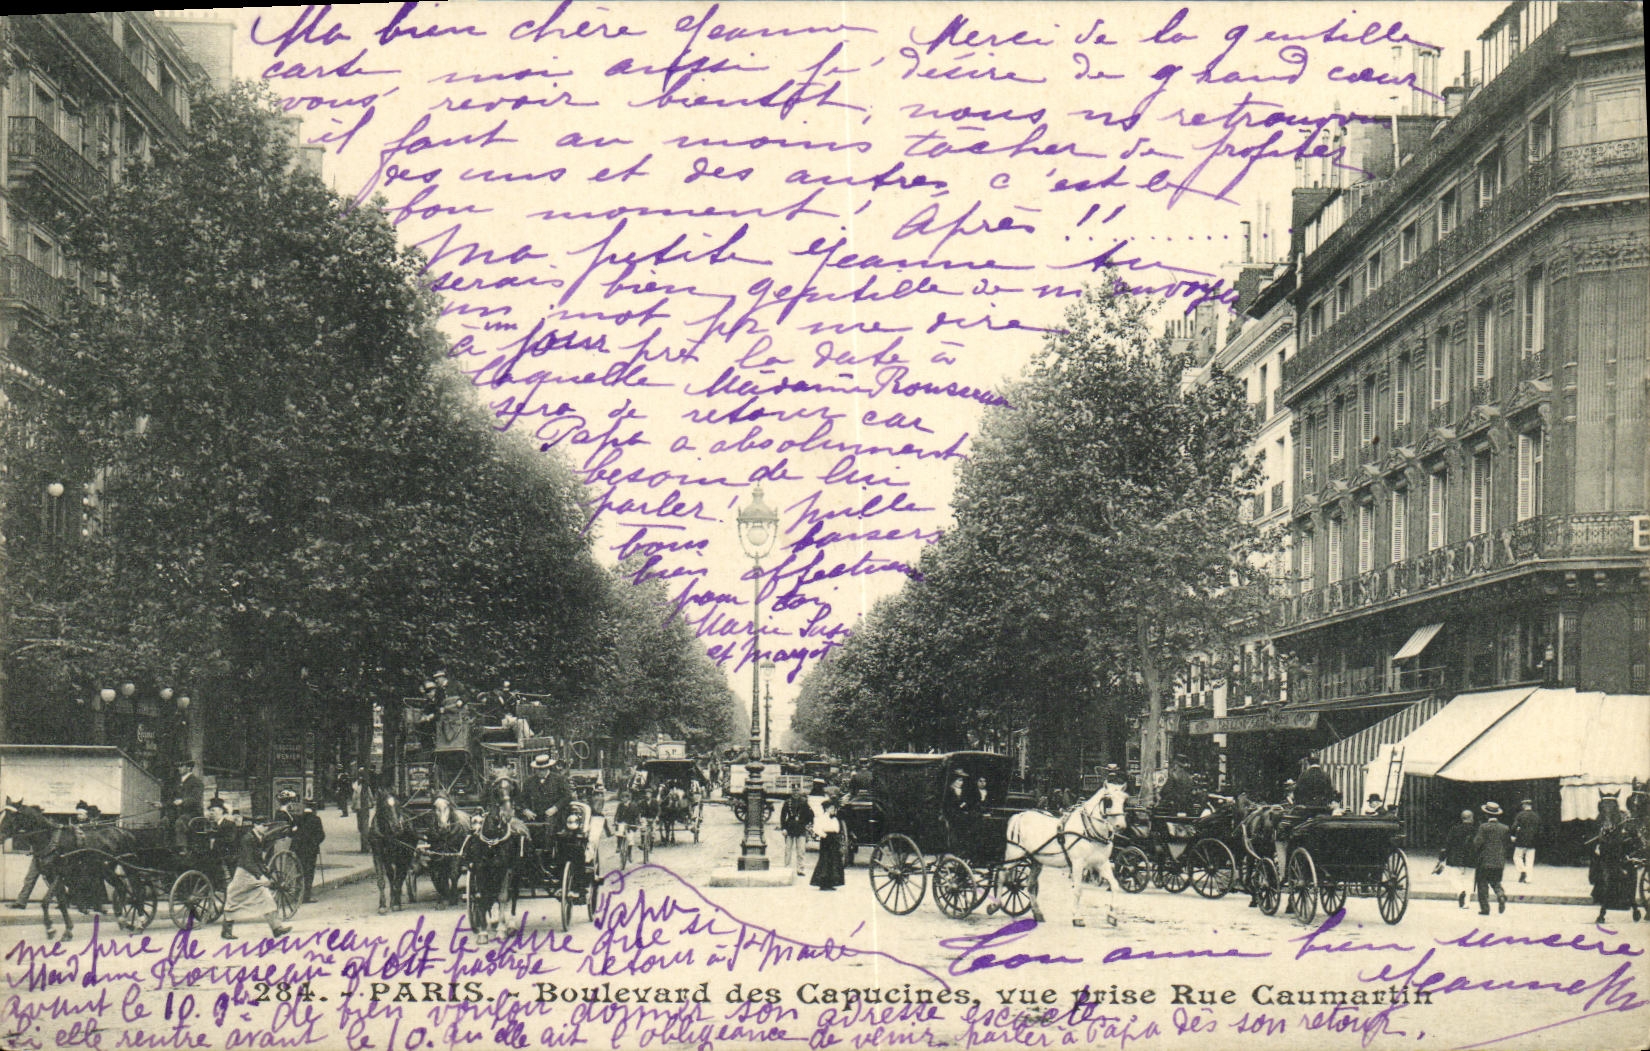 Ma bien chère Jeanne Merci de la gentille
carte, moi aussi je désire de grand cœur
vous revoir bientôt, nous ns retrouvons
il faut au moins tâcher de profiter
des uns et des autres, c'est le
bon moment! Après!!...........
Ma petite Jeanne tu
serais bien gentille de m'envoyer
un mot pr me dire
à un jour près la date à
laquelle Madame Rousseau
sera de retour car
Papa a absolument
besoin de lui
parler! mille
bons baisers
bien affectueux
pour toi
Marie
et Margot
Papa
me prie de nouveau, de te dire que si
Madame Rousseau n'est pas de retour à St Mandé
avant le 10. 9bre de bien vouloir donner son adresse
si elle rentre avant le 10. qu'elle ait l'obligeance de venir parler à Papa dès son retour.
Ton amie bien sincère
Jeanne
284. - PARIS. - Boulevard des Capucines, vue prise Rue Caumartin